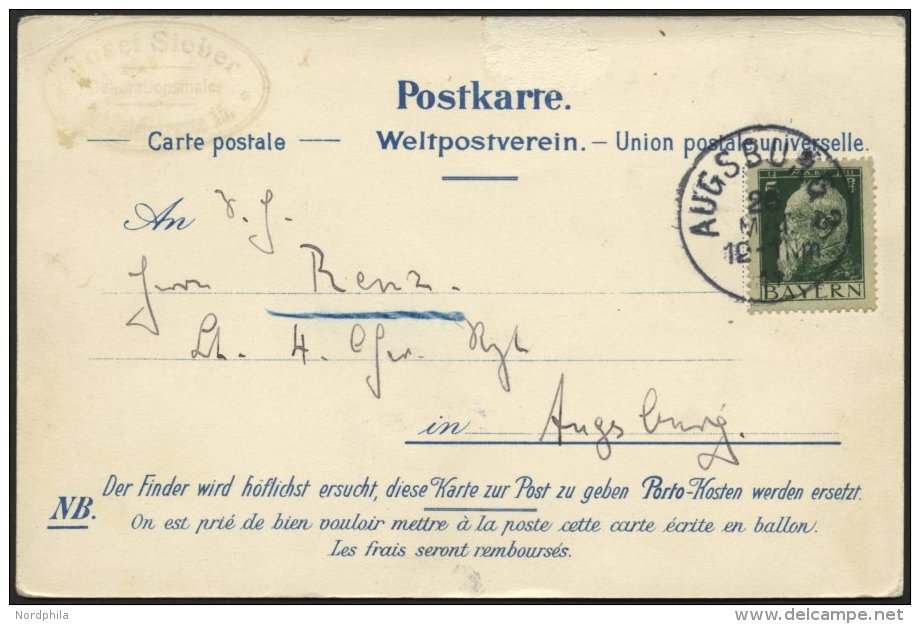 Josef Sieber
Dekorationsmaler
Postkarte.
Carte postale — Weltpostverein. — Union postale universelle.
AUGSBURG
5 5
BAYERN
An
Herrn Renz.
Lt. 4.
in Augsburg.
NB. Der Finder wird höflichst ersucht, diese Karte zur Post zu geben Porto-Kosten werden ersetzt.
On est prié de bien vouloir mettre à la poste cette carte écrite en ballon.
Les frais seront remboursés.
Nordphila
delcampe.net